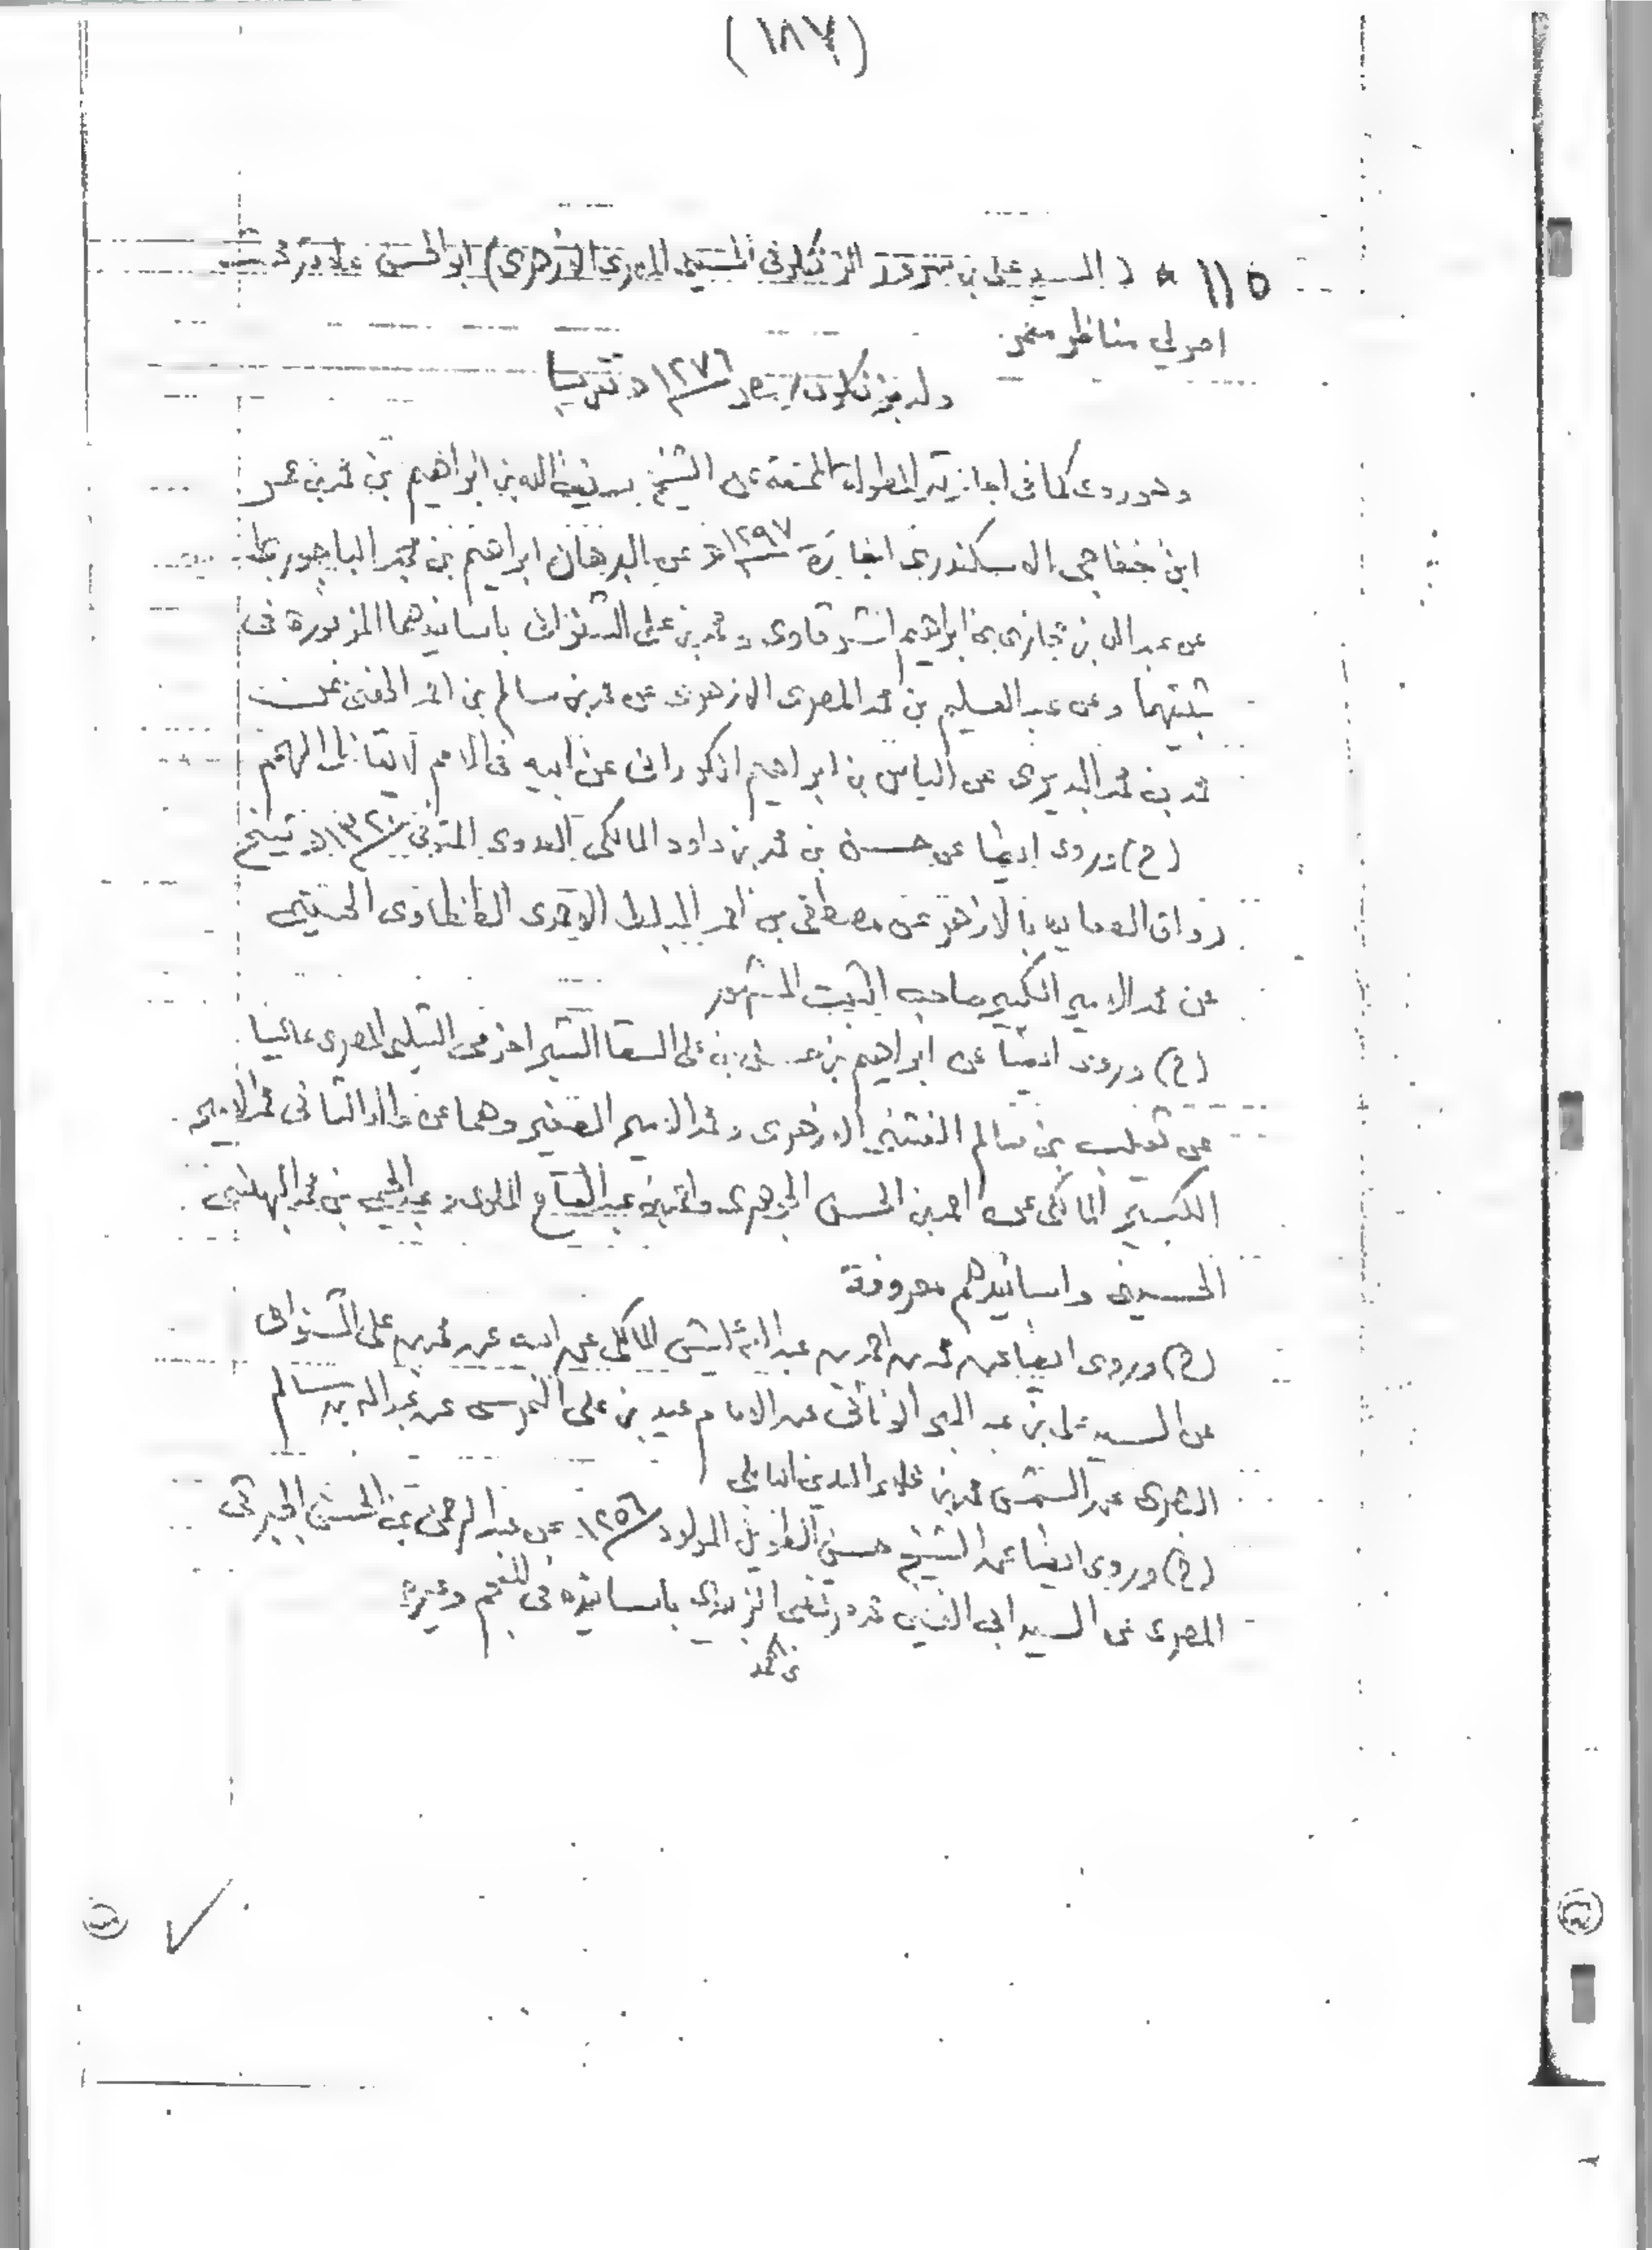 (١٨٧)
١١٥ * (السيد علي بن سرور الزنكلوني الحسيني المصري الأزهري) أبو الحسن علامة
اصولي مناظر معمر.
ولد بزنكلون / بمصر ١٢٧٦ ه تقريبا
وهو روى كما فى اجازته المطولة عن الشيخ بن ابراهيم بن محمد بن عمر
ابن خفاجي الاسكندري اجازة ١٢٩٧ ه عن البرهان ابراهيم بن محمد الباجوري
عن عبد الله بن حجازي بن ابراهيم الشرقاوى ومحمد بن علي الشنواني باسانيدهما المزبورة فى
ثبتيهما وعن عبد العليم بن محمد المصرى الازهري عن محمد بن سالم بن احمد الحفني عن
محمد بن محمد البديرى عن الياس بن ابراهيم الكوراني عن ابيه فى الامم لايقاظ الهمم
(ح) وروى ايضا عن حسن بن محمد بن داود المالكى العدوى المتوفى ١٣٢٠ ه شيخ
رواق الصعايده بالازهر عن مصطفى بن احمد المبلط الاحمدى الطنطاوى الحسيني
عن محمد الامير الكبير صاحب الثبت المشهور
(ح) وروى ايضا عن ابراهيم بن علي بن حسن السقا الشبراخومي الشلبي المصرى عاليا
عن ثعيلب بن سالم الفشني الازهرى ومحمد الامير الصغير وهما عن والد الثاني محمد الامير
الكبير المالكى عن احمد بن الحسن الجوهري واحمد بن عبد الفتاح الملوى وعبد الحي بن محمد البهنسي
الحسيني واسانيدهم معروفة
(ح) وروى ايضا عن محمد بن احمد بن عبد الله عليش المالكى عن ابيه عن محمد بن علي الشنواني
عن السيد علي بن عبد البر الونائي عن الامام عيد بن علي النمرسي عن عبد الله بن سالم
البصرى عن الشمس محمد بن علاء الدين البابلي
(ح) وروى ايضا عن الشيخ حسن الطويل المولود ١٢٥٦ عن عبد الرحمن بن الحسن الجبرتي
المصرى عن السيد ابي الفيض محمد مرتضى الزبيدى باسانيده فى المعجم وغيره